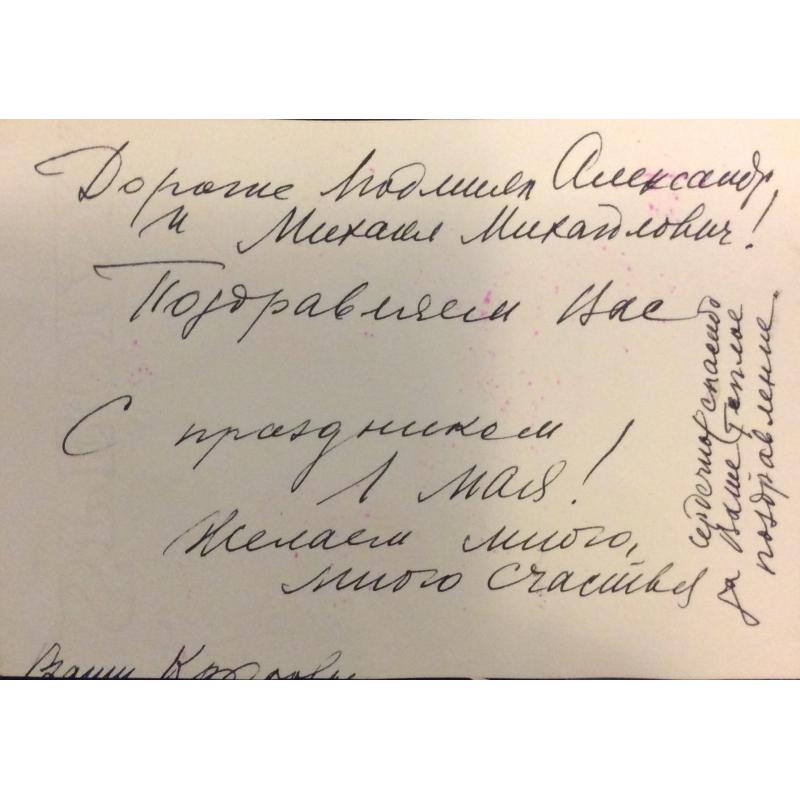 Дорогие Людмила Александр.
и Михаил Михайлович!
Поздравляем Вас
С праздником
1 мая!
Желаем много,
много счастья
Ваши
Сердечное спасибо
за Ваше теплое
поздравление.